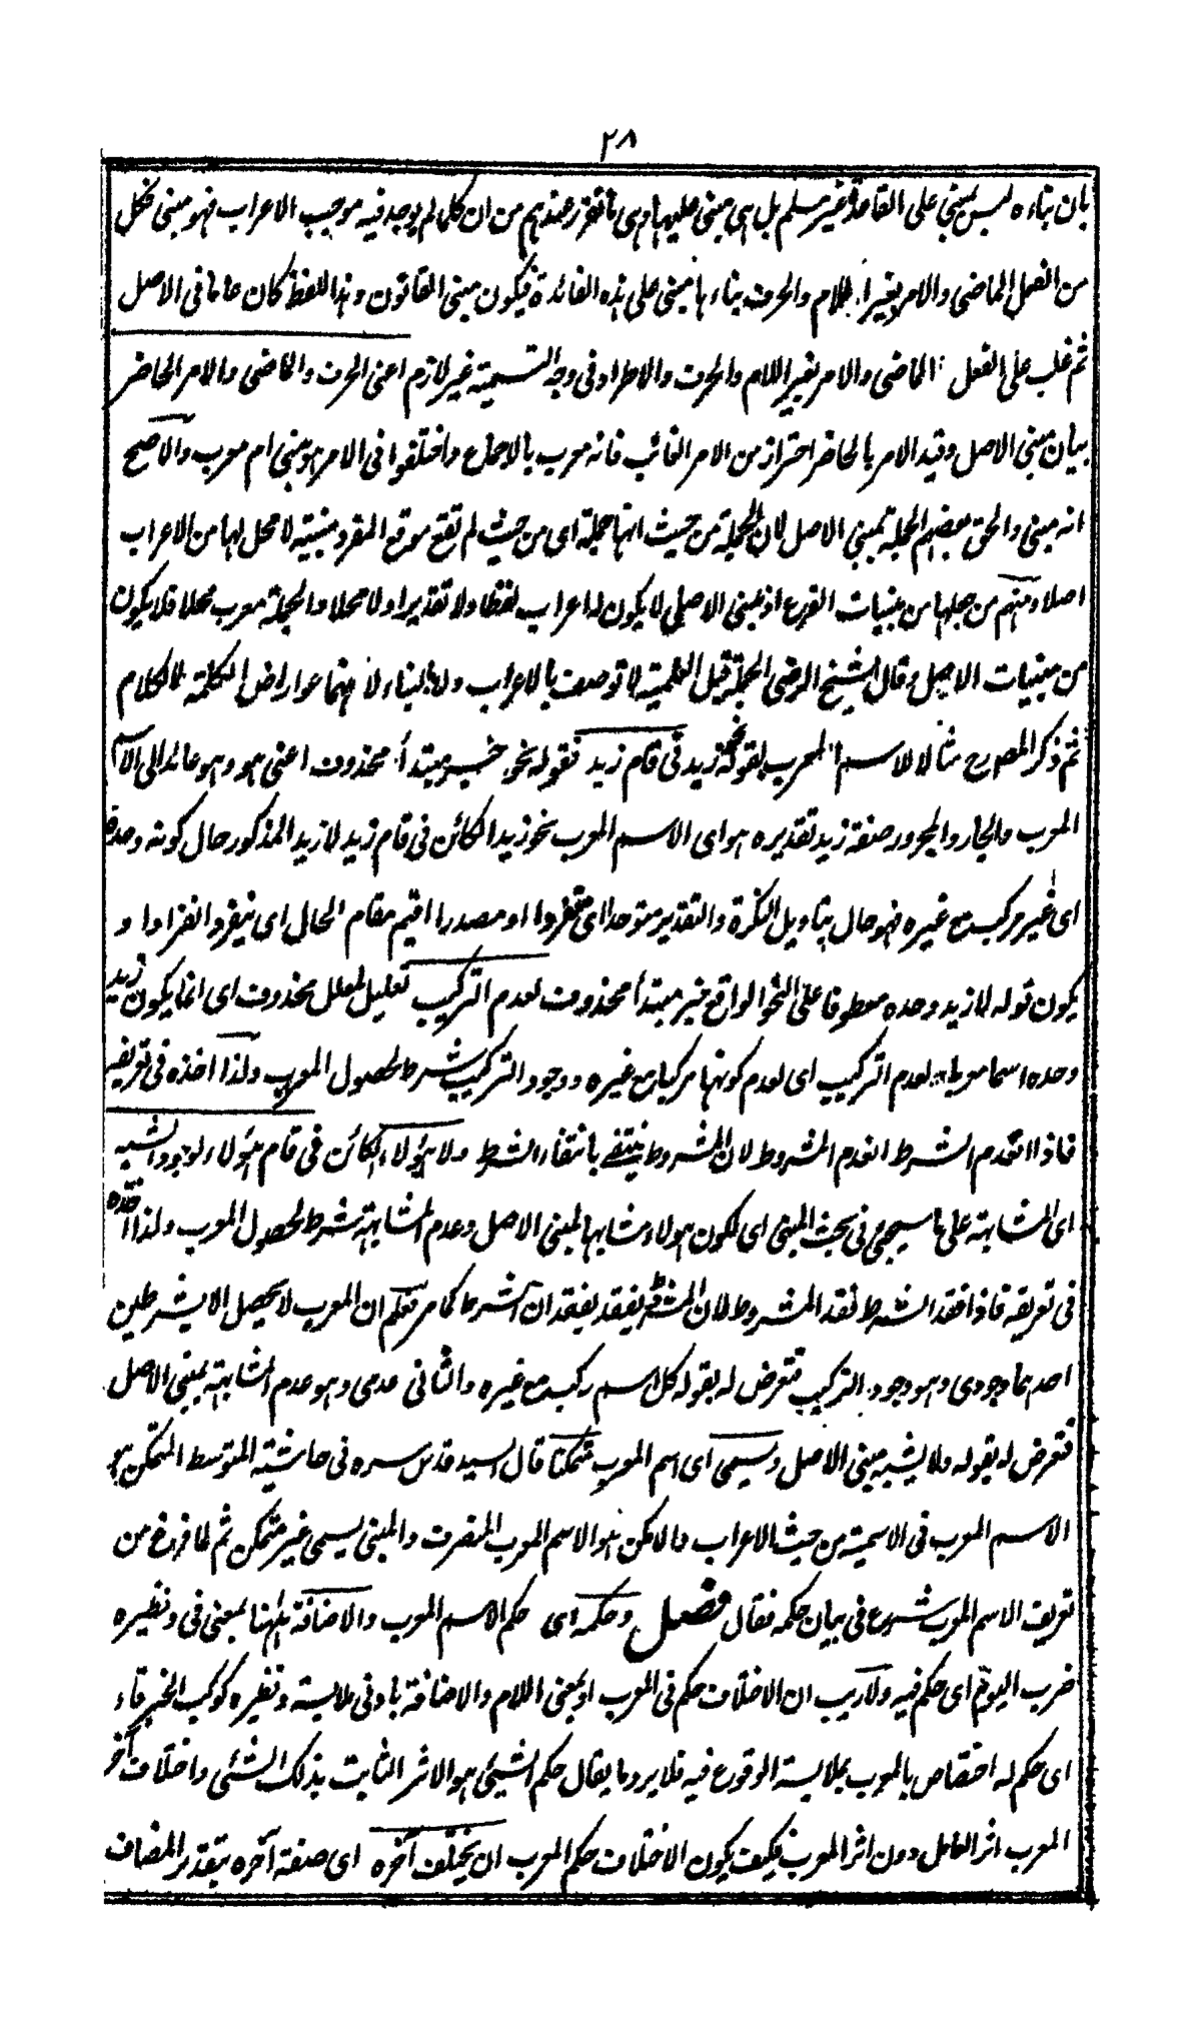 ٢٨
بان بناءه ليس بمبنى على القاعدة غير مسلم بل هى مبنى عليها وهى ما تقرر عندهم من ان كلما لم يوجد فيه موجب الاعراب فهو مبنى فكل
من الفعل الماضى والامر بغير اللام والحرف بناءها مبنى على هذه القاعدة فيكون مبنى القانون وهذا اللفظ كان عاما فى الاصل
ثم غلب على الفعل الماضى والامر بغير اللام والحرف والاطراد فى وجه التسمية غير لازم اعنى الحرف والماضى والامر الحاضر
بيان مبنى الاصل وقيد الامر بالحاضر احتراز من الامر الغائب فانه معرب بالاجماع واختلفوا فى الامر هو مبنى ام معرب والاصح
انه مبنى والحق بعضهم الجملة بمبنى الاصل لان الجملة من حيث انها جملة اى من حيث لم تقع موقع المفرد مبنية لا محل لها من الاعراب
اصلا ومنهم من جعلها من مبنيات الفرع اذ مبنى الاصلى لا يكون له اعراب لفظا ولا تقديرا ولا محلا والجملة معرب محلا فلا يكون
من مبنيات الاصل وقال الشيخ الرضى الجملة قبل العلمية لا توصف بالاعراب ولا بالبناء لانهما عوارض الكلمة لا الكلام
ثم ذكر المصرح مثالا للاسم المعرب بقوله نحو زيد فى قام زيد فقوله نحو خبر مبتدأ محذوف اعنى هو وهو عائد الى الاسم
المعرب والجار والمجرور صفة زيد تقديره هو اى الاسم المعرب نحو زيد الكائن فى قام زيد لا زيد المذكور حال كونه وحده
اى غير مركب مع غيره فهو حال بتاويل النكرة والتقدير متوحدا اى متفردا او مصدرا اقيم مقام الحال اى ينفرد انفرادا و
يكون قوله لا زيد وحده معطوفا على النحو الواقع خبر مبتدأ محذوف لعدم التركيب تعليل لمعلل محذوف اى انما يكون زيد
وحده اسما معربا لعدم التركيب اى لعدم كونها مركبا مع غيره ووجود التركيب شرط لحصول المعرب ولذا اخذه فى تعريفه
فاذا انعدم الشرط انعدم المشروط لان المشروط ينتفى بانتفاء الشرط ولا هؤلاء الكائن فى قام هؤلاء لوجود الشبه
اى المشابهة على ما سيجئ فى بحث المبنى اى لكون هؤلاء مشابها لمبنى الاصل وعدم المشابهة شرط لحصول المعرب ولذا اخذه
فى تعريفه فاذا فقد الشرط فقد المشروط لان الشئ يفقد بفقدان الشرط كما مر فعلم ان المعرب لا يحصل الا بشرطين
احدهما وجودى وهو وجود التركيب فتعرض له بقوله كل اسم ركب مع غيره والثانى عدمى وهو عدم المشابهة بمبنى الاصل
فتعرض له بقوله ولا يشبه مبنى الاصل ويسمى اى اسم المعرب متمكنا قال السيد قدس سره فى حاشية المتوسط المتمكن هو
الاسم المعرب فى الاسمية من حيث الاعراب والامكن هو الاسم المعرب المنصرف والمبنى يسمى غير متمكن ثم لما فرغ من
تعريف الاسم المعرب شرع فى بيان حكمه فقال فصل وحكمه اى حكم الاسم المعرب والاضافة ههنا بمعنى فى ونظيره
ضرب اليوم اى حكم فيه ولا ريب ان الاختلاف حكم فى المعرب او بمعنى اللام والاضافة بادنى ملابسة ونظيره كوكب الخرقاء
اى حكم له اختصاص بالمعرب بملابسة الوقوع فيه فلا يرد ما يقال حكم الشئ هو الاثر الثابت بذلك الشئ واختلاف آخر
المعرب اثر العامل دون اثر المعرب فكيف يكون الاختلاف حكم المعرب ان يختلف آخره اى صفة آخره بتقدير المضاف